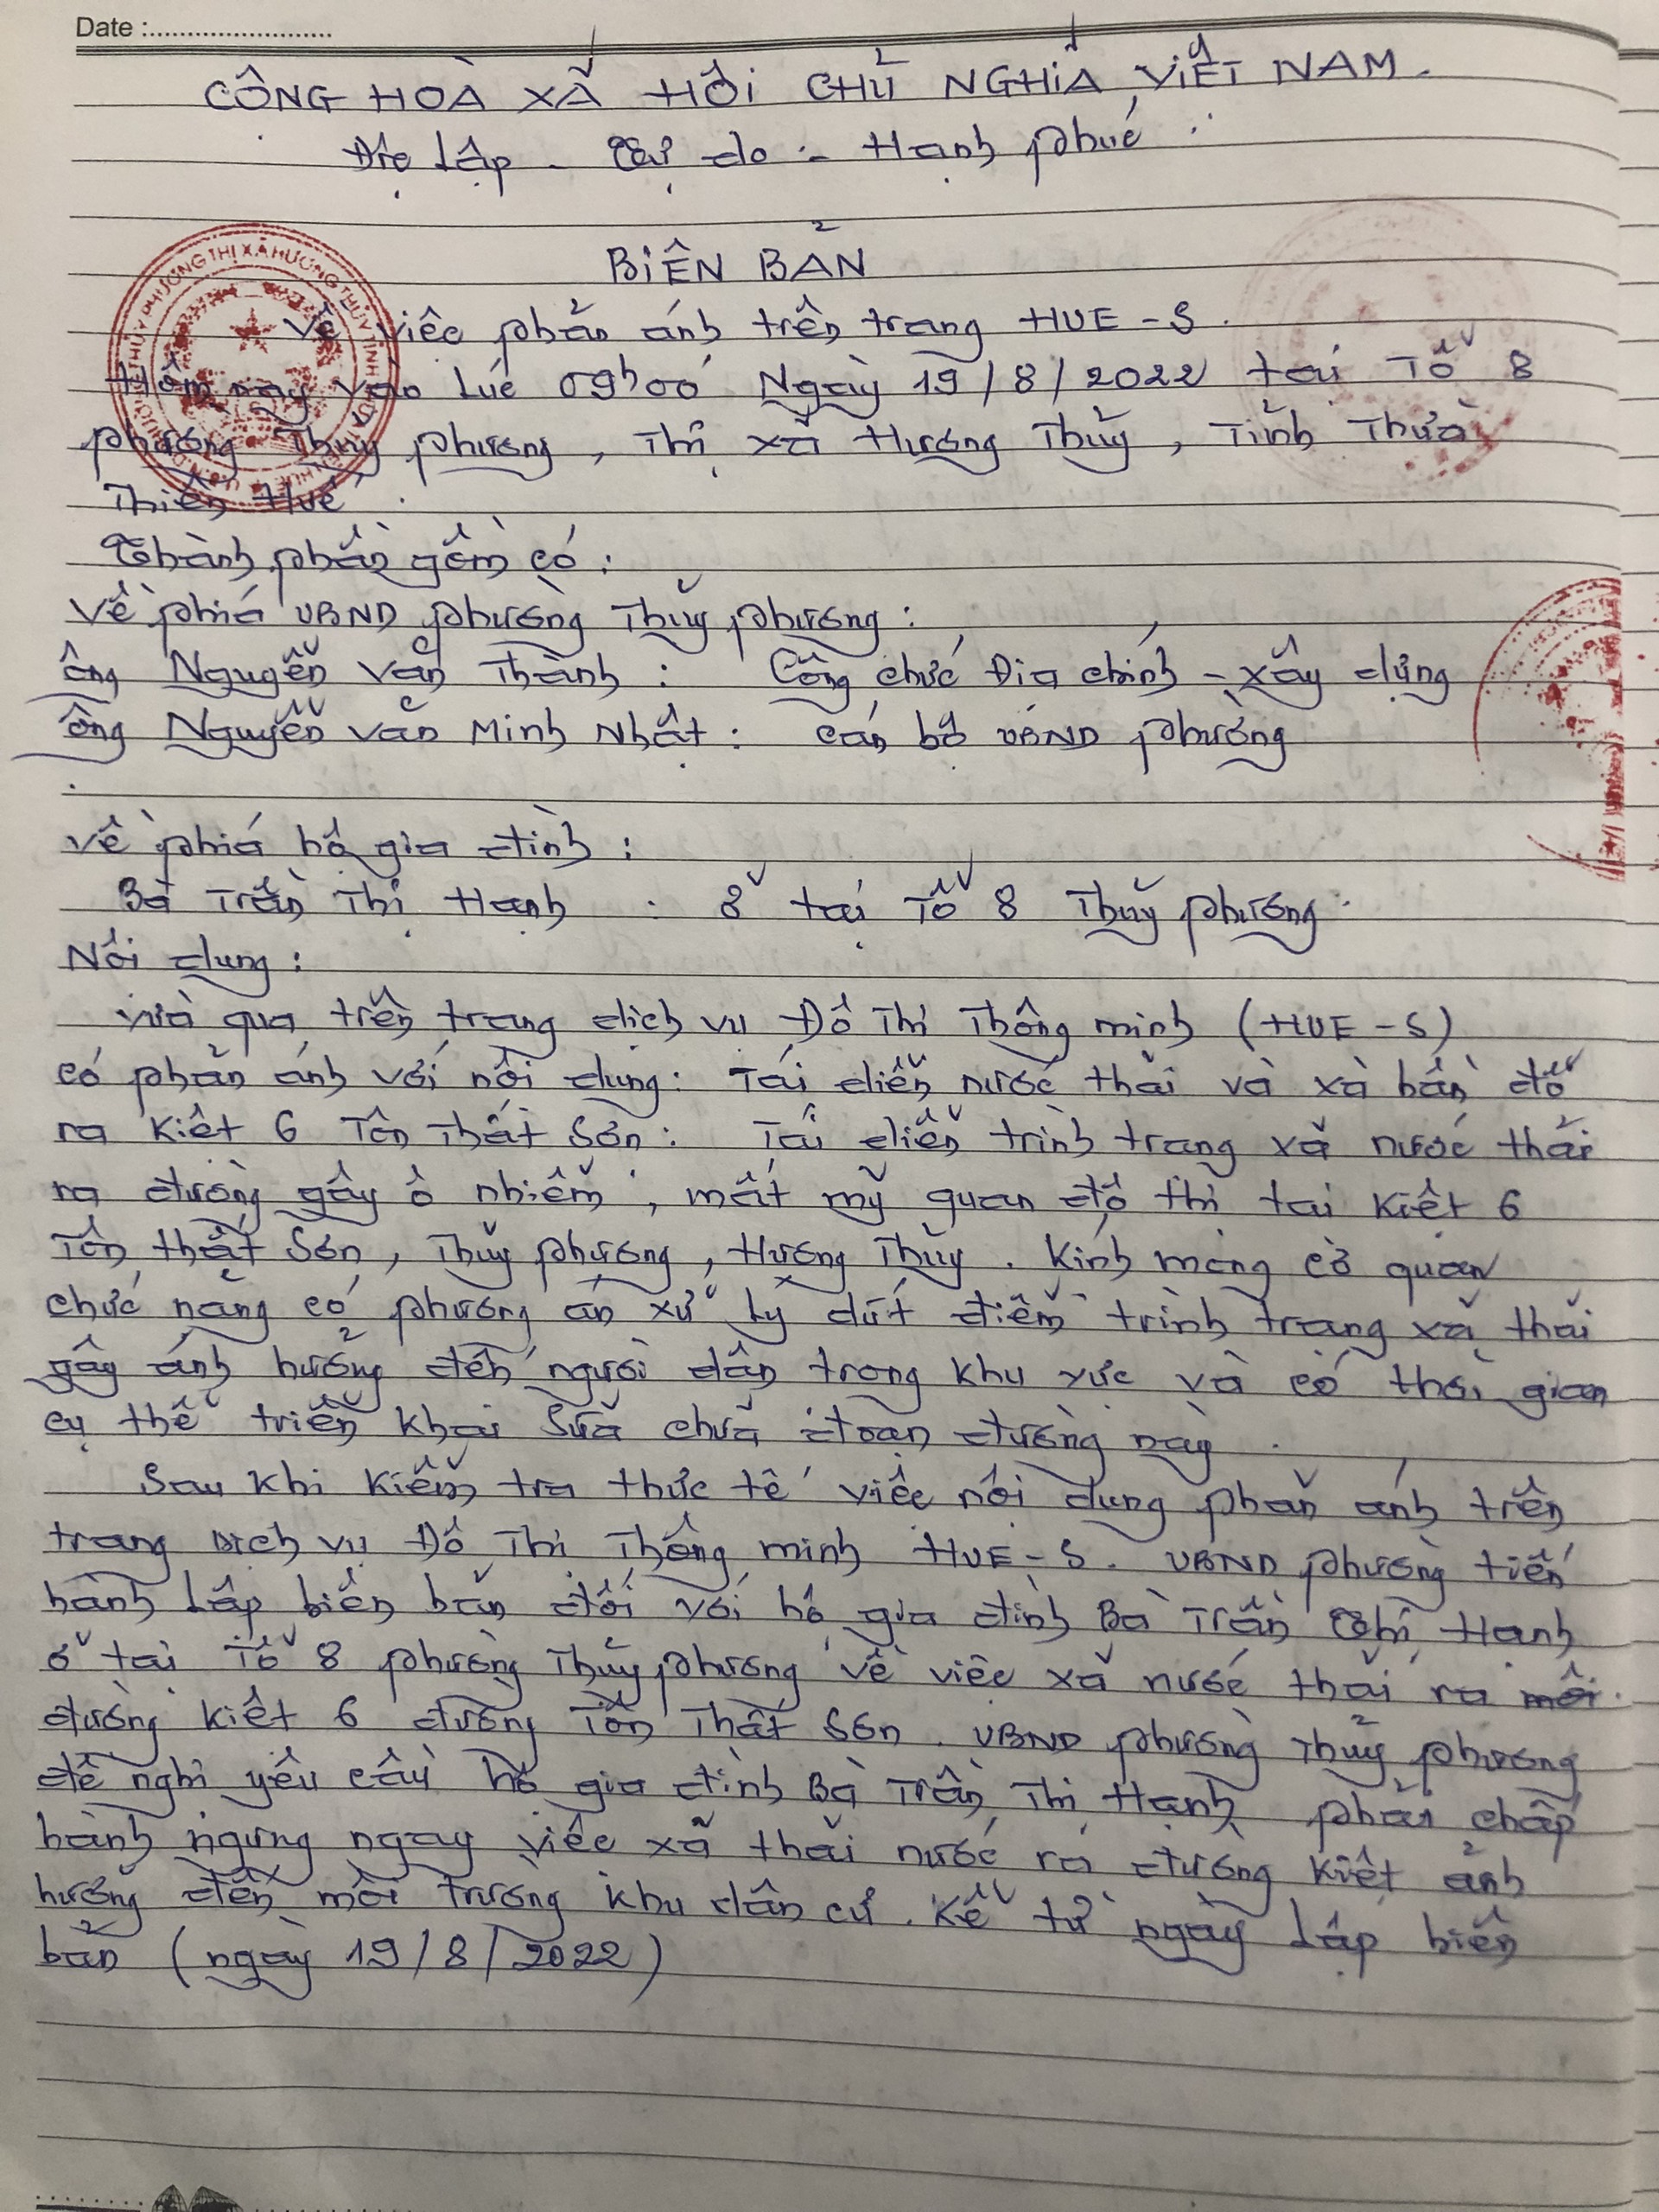 Date :........................
CÔNG HOÀ XÃ HỘI CHỦ NGHĨA VIỆT NAM.
Độc lập - Tự do - Hạnh phúc
BIÊN BẢN
Về việc phản ánh trên trang HUE-S.
Hôm nay vào lúc 09h00 Ngày 19/8/2022 tại Tổ 8
phường Thủy phương, Thị xã Hương Thủy, Tỉnh Thừa
Thiên Huế.
Thành phần gồm có:
Về phía UBND phường Thủy phương:
ông Nguyễn Văn Thành: Công chức Địa chính - xây dựng
ông Nguyễn Văn Minh Nhật: cán bộ UBND phường
Về phía hộ gia đình:
Bà Trần Thị Hạnh : ở tại Tổ 8 Thủy phương.
Nội dung:
Vừa qua trên trang dịch vụ Đô Thị Thông minh (HUE-S)
có phản ánh với nội dung: Tái diễn nước thải và xà bần đổ
ra Kiệt 6 Tôn Thất Sơn: Tái diễn trình trạng xả nước thải
ra đường gây ô nhiễm, mất mỹ quan đô thị tại Kiệt 6
Tôn thất Sơn, Thủy phương, Hương Thủy. Kính mong cơ quan
chức năng có phương án xử lý dứt điểm trình trạng xả thải
gây ảnh hưởng đến người dân trong khu vực và có thời gian
cụ thể triển khai sửa chữa đoạn đường này.
Sau khi kiểm tra thực tế việc nội dung phản ánh trên
trang Dịch vụ Đô Thị Thông minh HUE-S. UBND phường tiến
hành lập biên bản đối với hộ gia đình Bà Trần Thị Hạnh
ở tại Tổ 8 phường Thủy phương về việc xả nước thải ra môi
đường Kiệt 6 đường Tôn Thất Sơn. UBND phường Thủy phương
đề nghị yêu cầu hộ gia đình Bà Trần Thị Hạnh phải chấp
hành ngưng ngay việc xả thải nước ra đường Kiệt ảnh
hưởng đến môi trường khu dân cư. Kể từ ngày lập biên
bản (ngày 19/8/2022)